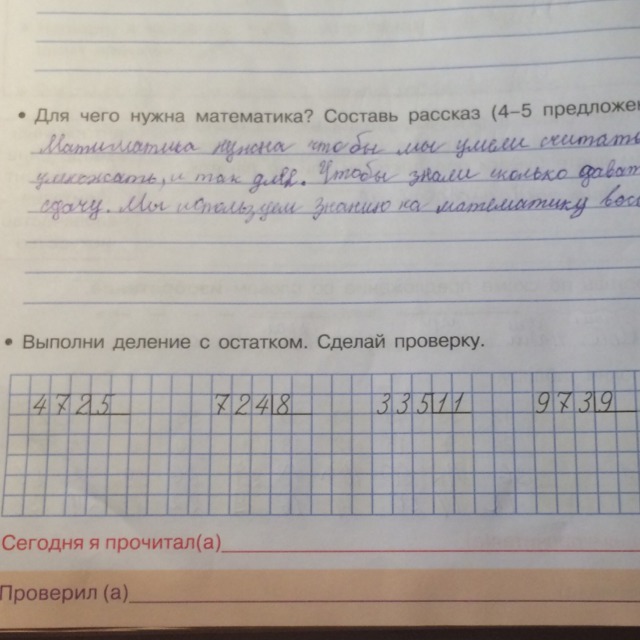 • Для чего нужна математика? Составь рассказ (4–5 предложен
Матиматика нужна что бы мы умели считать
умножать, и так дал. Чтобы знали сколько дават
сдачу. Мы используем знанию на математику
• Выполни деление с остатком. Сделай проверку.
472|5 724|8 335|11 973|9
Сегодня я прочитал(а)
Проверил (а)